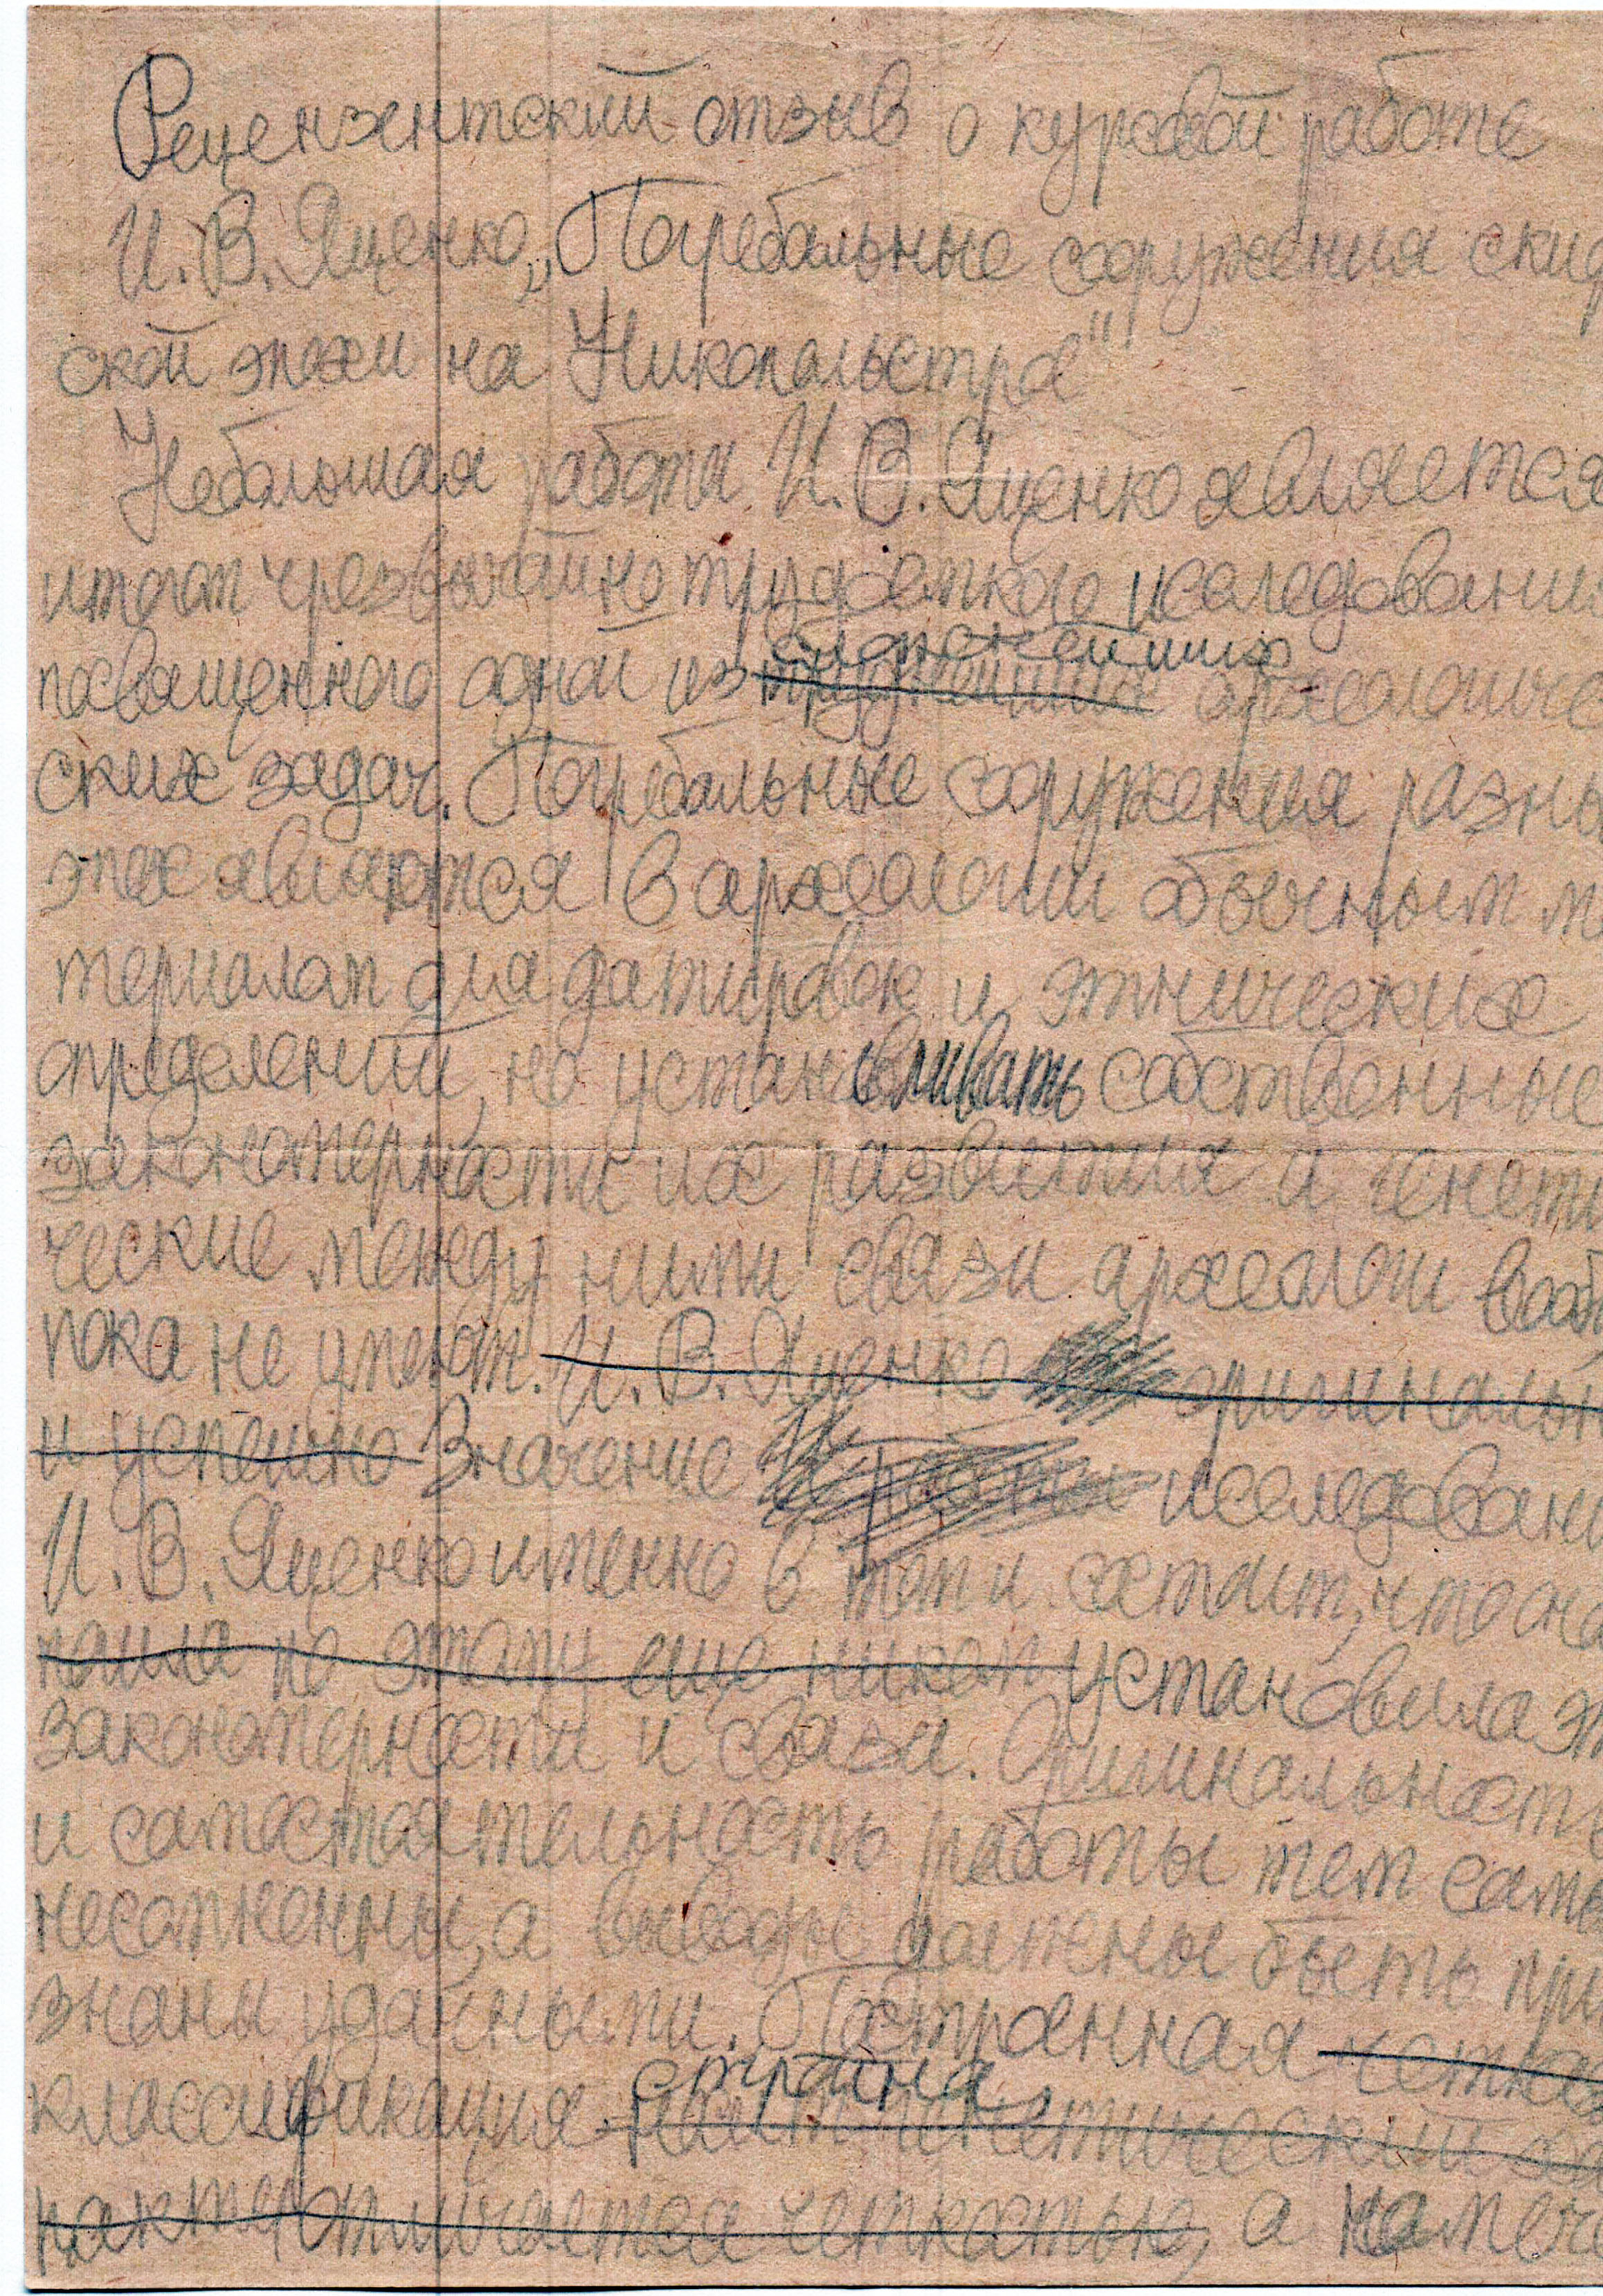 Рецензентский отзыв о курсовой работе
И. В. Яценко „Погребальные сооружения скиф
ской эпохи на Никопольстро"
Небольшая работа И. В. Яценко является
итогом чрезвычайно трудоемкого исследовани
сложнейших
посвященного одной из труднейших археологиче
ских задач. Погребальные сооружения разны
эпох являются в археологии обычным м
териалом для датировок и этнических
определений, но устанавливать собственные
закономерности их развития и генети
ческие между ними связи археологи вооб
пока не умеют. И. В. Яценко оригинальн
и успешно Значение исследовани
И. В. Яценко именно в том и состоит, что она
нашла по этому еще никем установила эт
закономерности и связи. Оригинальность
и самостоятельность работы тем самы
несомненны, а выводы должны быть при
знаны удачными. Построенная четкая
стройна,
классификация носит генетический ха
рактер отличается четкостью, а намече